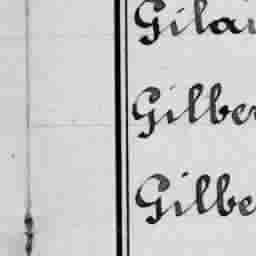 Gilai
Gilber
Gilbe